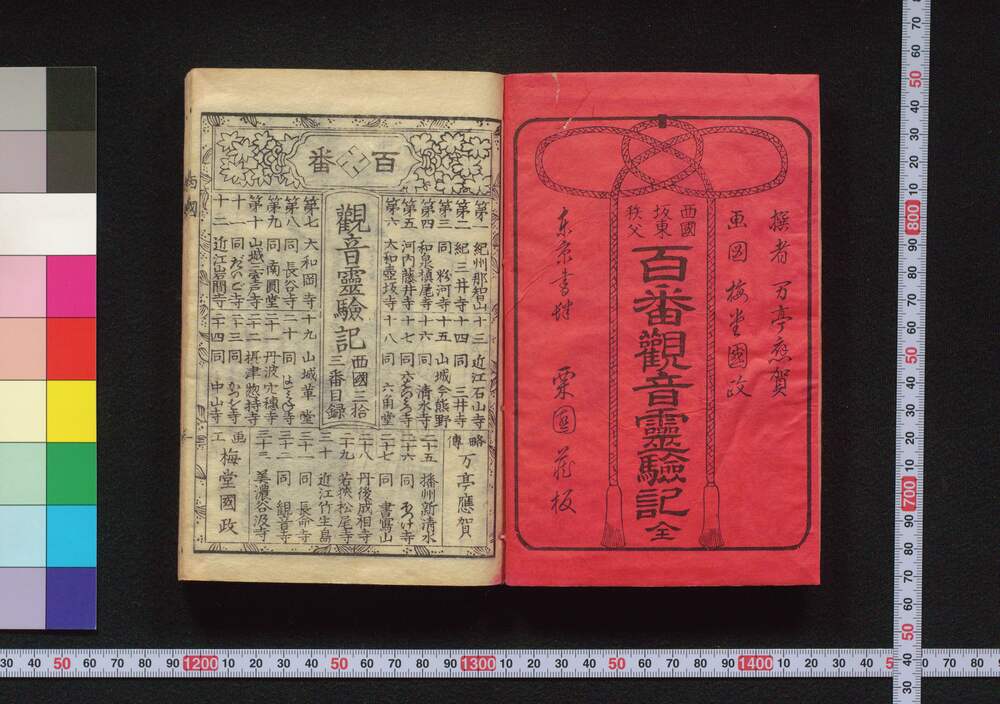 撰者 万亭應賀
画図 梅堂國政
西國
坂東
秩父
百番觀音靈驗記 全
東京書肆
蔵板
百卍番
第一 紀州那智山 十三 近江石山寺
第二 紀三井寺 十四 同 三井寺
第三 同 粉河寺 十五 山城今熊野
第四 和泉槙尾寺 十六 同 清水寺
第五 河内藤井寺 十七 同
第六 大和壺坂寺 十八 同 六角堂
觀音靈驗記
西國三拾
三番目録
第七 大和岡寺 十九 山城革堂
第八 同 長谷寺 二十 同
第九 同 南圓堂 二十一 丹波穴穂寺
第十 山城三室戸寺 二十二 摂津惣持寺
十一 同 二十三 同
十二 近江岩間寺 二十四 同 中山寺
略傳 万亭應賀
二十五 播州新清水
二十六 同
二十七 同 書寫山
二十八 丹後成相寺
二十九 若狭松尾寺
三十 近江竹生島
三十一 同 長命寺
三十二 同 観音寺
三十三 美濃谷汲寺
画工 梅堂國政
西國